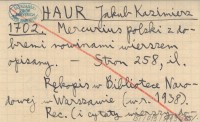 HAUR Jakub Kazimierz
1702. Mercurius polski z do-
bremi nowinami wierszem
opisany. – Stron 258, il.
Rękopis w Bibliotece Naro-
dowej – Warszawie (w r. 1938).
Rec. (i cytaty